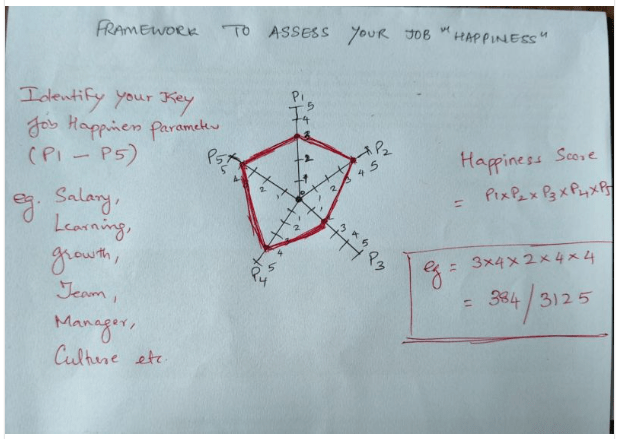 FRAMEWORK TO ASSESS YOUR JOB "HAPPINESS"
Identify your Key
Job Happiness Parameter
(P1 - P5)
eg. Salary,
Learning,
growth,
Team,
Manager,
Culture etc.
P1
5
4
3
2
1
P2
5
4
3
2
1
P3
5
4
3
P4
5
4
3
2
1
P5
5
4
2
1
Happiness Score
= P1xP2xP3xP4xP5
eg = 3x4x2x4x4
= 384/3125